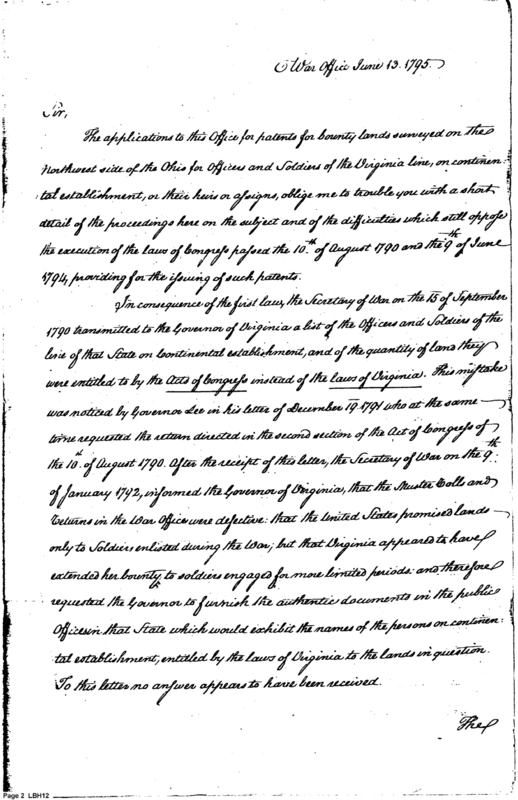 War Office June 13. 1795.
Sir,
The applications to this Office for patents for bounty lands surveyed on the
Northwest side of the Ohio for Officers and Soldiers of the Virginia line, on continen=
tal establishment, or their heirs or assigns, oblige me to trouble you with a short
detail of the proceedings here on the subject and of the difficulties which still oppose
the execution of the laws of Congress passed the 10th of August 1790 and the 9th of June
1794, providing for the issuing of such patents.
In consequence of the first law, the Secretary of War on the 15 of September
1790 transmitted to the Governor of Virginia a list of the Officers and Soldiers of the
line of that State on Continental establishment, and of the quantity of land they
were entitled to by the Acts of Congress instead of the laws of Virginia. This mistake
was noticed by Governor Lee in his letter of December 19. 1791 who at the same
time requested the return directed in the second section of the Act of Congress of
the 10th of August 1790. After the receipt of this letter, the Secretary of War on the 9th
of January 1792, informed the Governor of Virginia, that the Muster Rolls and
Returns in the War Office were defective: that the United States promised lands
only to Soldiers enlisted during the War; but that Virginia appeared to have
extended her bounty to soldiers engaged for more limited periods: and therefore
requested the Governor to furnish the authentic documents in the public
Offices in that State which would exhibit the names of the persons on continen=
tal establishment, entitled by the laws of Virginia to the lands in question.
To this letter no answer appears to have been received.
The
Page 2 LBH12